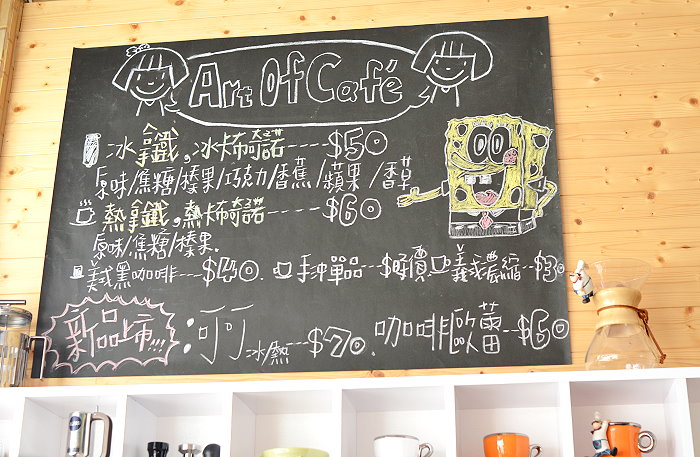 Art Of Café
冰拿鐵,冰卡布奇諾-----$50
原味/焦糖/榛果/巧克力/香蕉/蘋果/香草
熱拿鐵,熱卡布奇諾-----$60
原味/焦糖/榛果.
美式黑咖啡---$40. 手沖單品---$時價 義式濃縮--$30
新品上市!!!:可可冰熱---$70. 咖啡歐蕾--$60